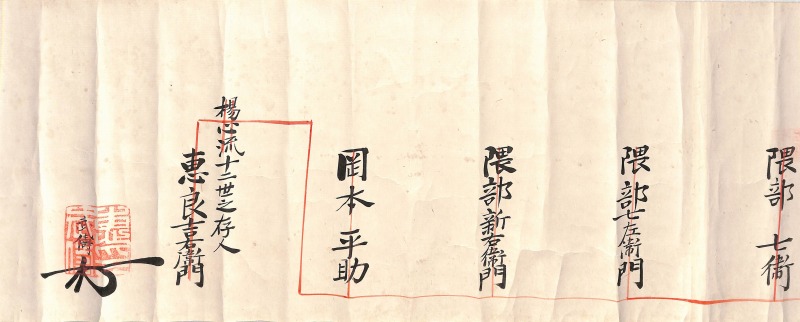 隈部 七衛
隈部七左衛門
隈部新右衛門
岡本平助
楊心流十二世之存人
恵良吉右衛門